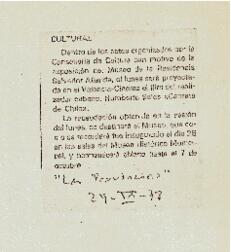 CULTURAL
Dentro de los actos organizados por la
Conselleria de Cultura con motivo de la
exposición del Museo de la Resistencia
Salvador Allende, el lunes será proyecta-
do en el Valencia-Cinema el film del reali-
zador cubano, Humberto Solás «Cantata
de Chile».
La recaudación obtenida en la sesión
del lunes, se destinará al Museo, que co-
mo se recordará fue inaugurado el día 28
en las salas del Museo Histórico Munici-
pal, y permanecerá abierto hasta el 7 de
octubre
"LAS PROVINCIAS"
29-IX-